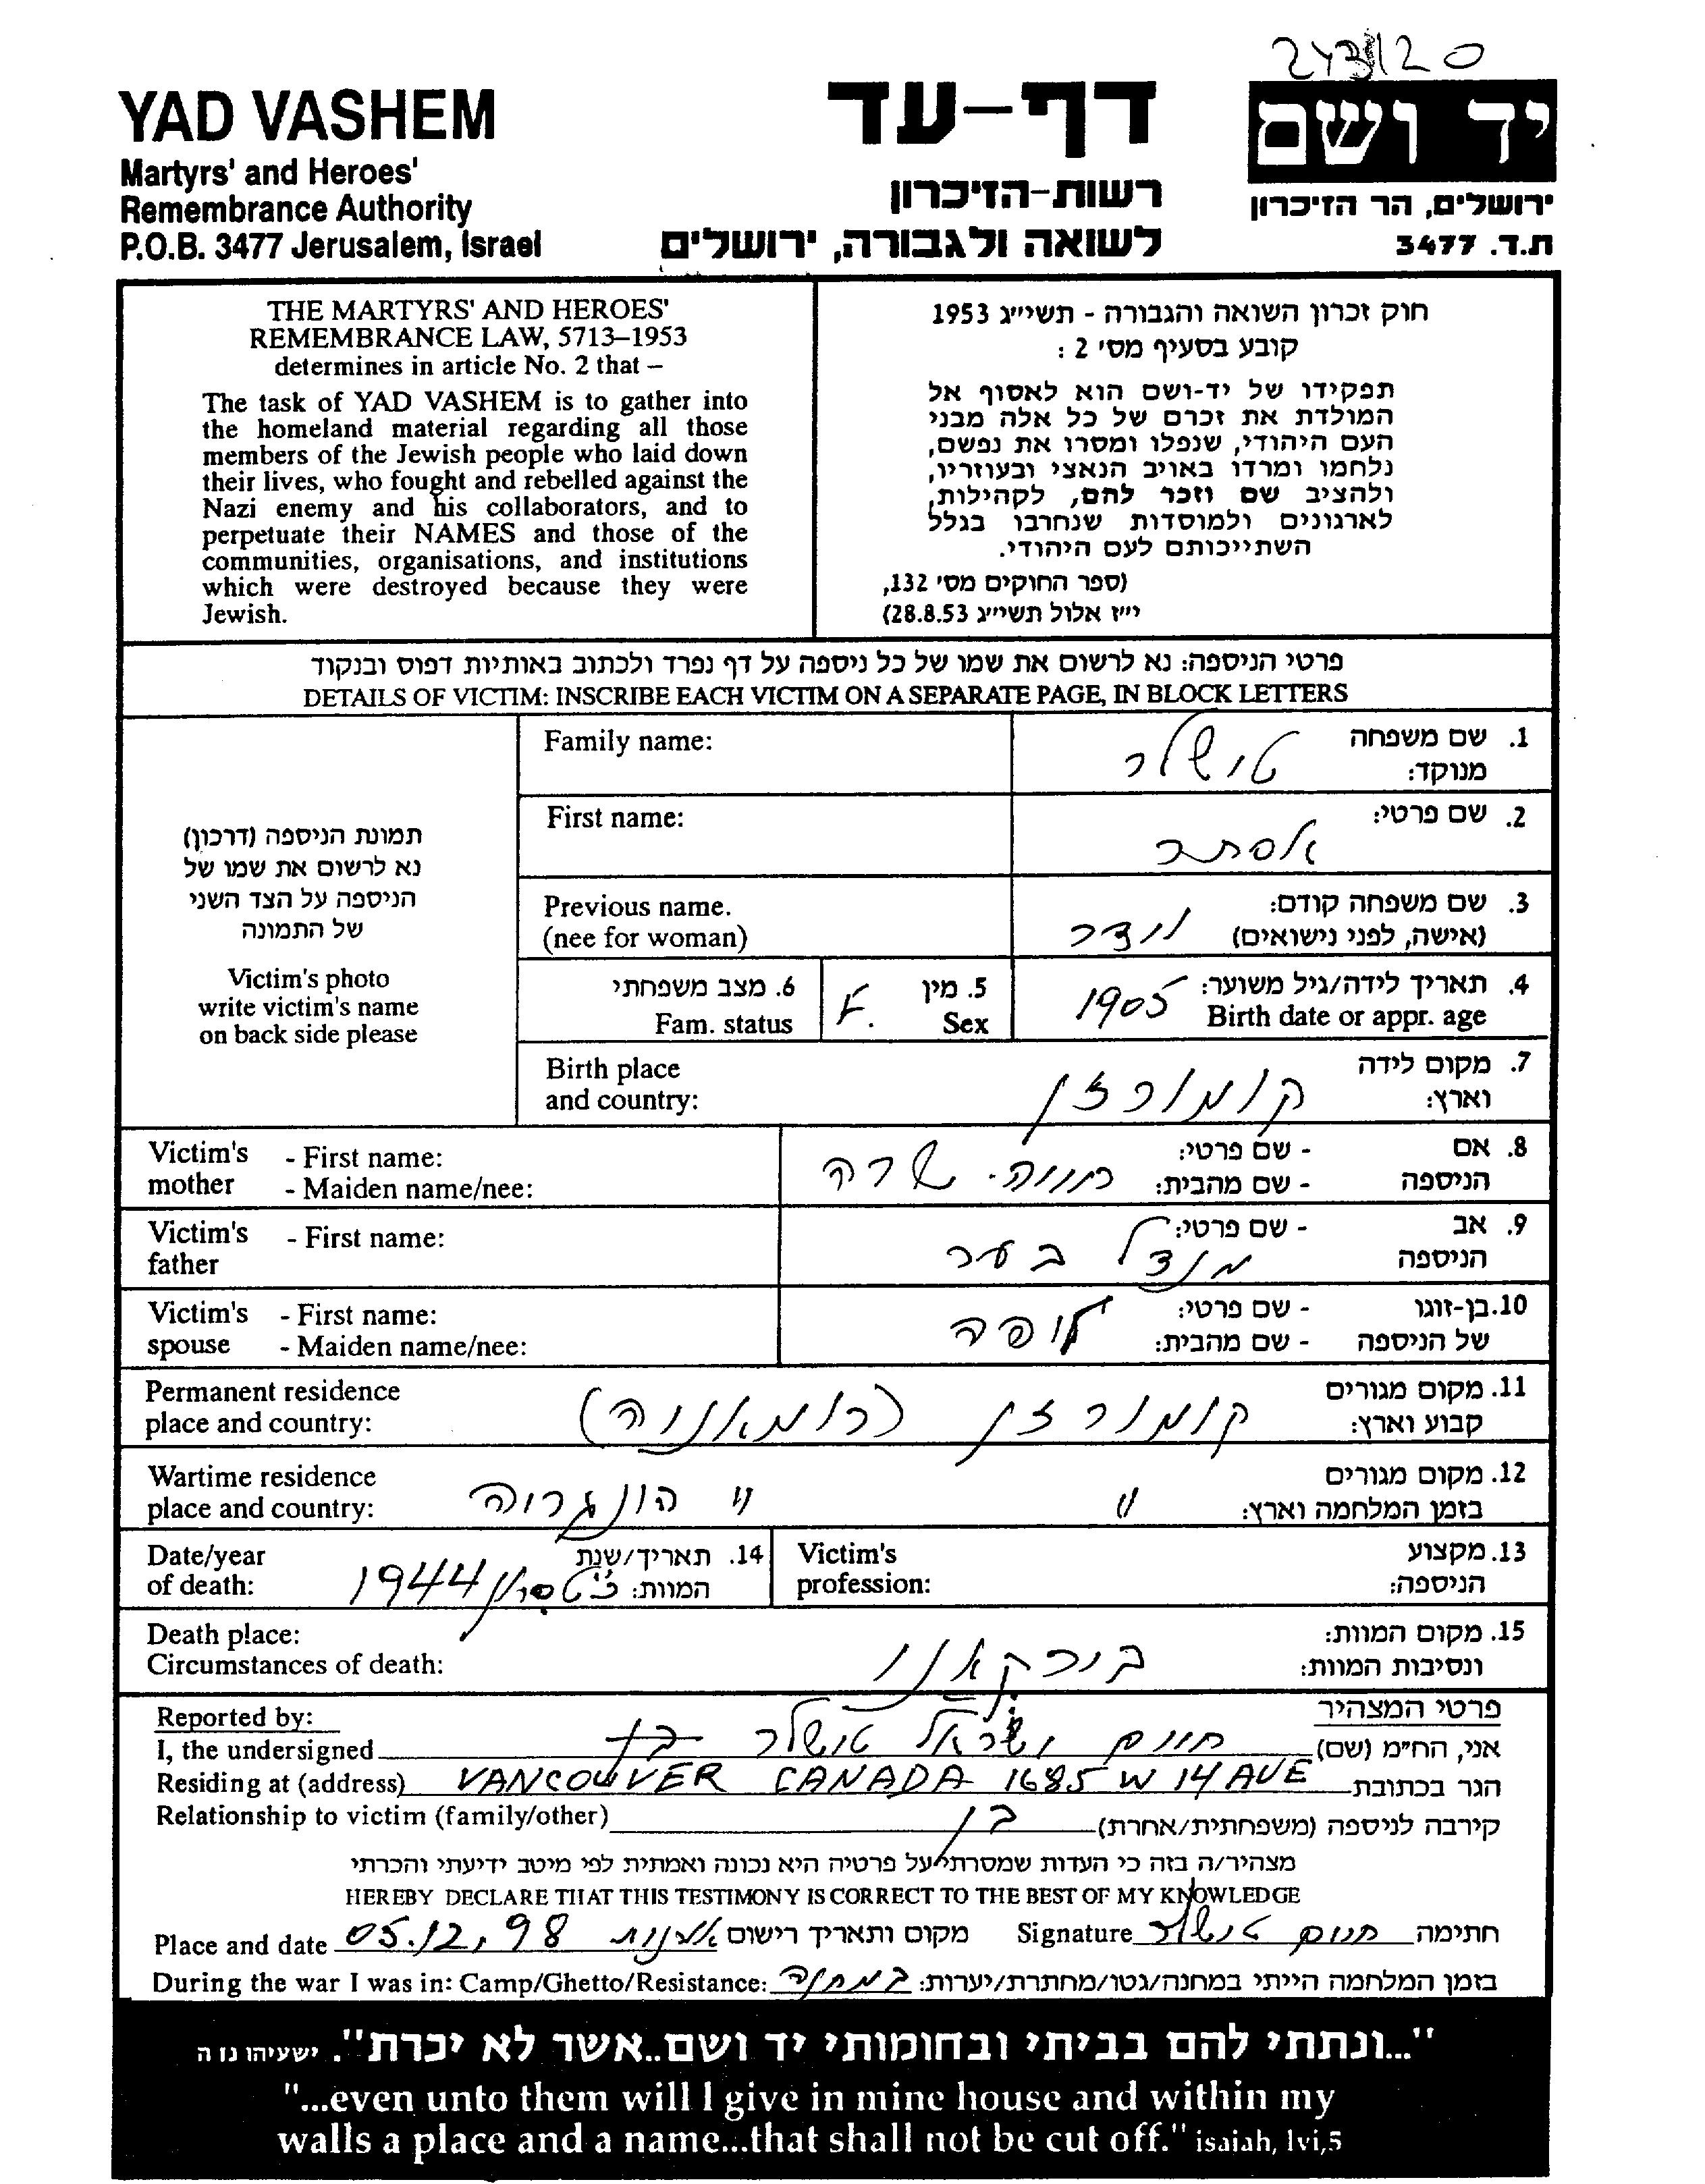 243120
YAD VASHEM
Martyrs' and Heroes'
Remembrance Authority
P.O.B. 3477 Jerusalem, Israel
דף-עד
רשות-הזיכרון
לשואה ולגבורה, ירושלים
יד ושם
ירושלים, הר הזיכרון
ת.ד. 3477
THE MARTYRS' AND HEROES'
REMEMBRANCE LAW, 5713–1953
determines in article No. 2 that –
The task of YAD VASHEM is to gather into
the homeland material regarding all those
members of the Jewish people who laid down
their lives, who fought and rebelled against the
Nazi enemy and his collaborators, and to
perpetuate their NAMES and those of the
communities, organisations, and institutions
which were destroyed because they were
Jewish.
חוק זכרון השואה והגבורה - תשי״ג 1953
קובע בסעיף מס׳ 2 :
תפקידו של יד-ושם הוא לאסוף אל
המולדת את זכרם של כל אלה מבני
העם היהודי, שנפלו ומסרו את נפשם,
נלחמו ומרדו באויב הנאצי ובעוזריו,
ולהציב שם וזכר להם, לקהילות,
לארגונים ולמוסדות שנחרבו בגלל
השתייכותם לעם היהודי.
(ספר החוקים מס׳ 132,
י״ז אלול תשי״ג 28.8.53)
פרטי הניספה: נא לרשום את שמו של כל ניספה על דף נפרד ולכתוב באותיות דפוס ובנקוד
DETAILS OF VICTIM: INSCRIBE EACH VICTIM ON A SEPARATE PAGE, IN BLOCK LETTERS
תמונת הניספה (דרכון)
נא לרשום את שמו של
הניספה על הצד השני
של התמונה
Victim's photo
write victim's name
on back side please
1. שם משפחה
מנוקד: טושלר
Family name:
2. שם פרטי: אסתר
First name:
3. שם משפחה קודם:
(אישה, לפני נישואים) וידר
Previous name.
(nee for woman)
4. תאריך לידה/גיל משוער: 1905
Birth date or appr. age
5. מין F.
Sex
6. מצב משפחתי
Fam. status
7. מקום לידה
וארץ: קומורזן
Birth place
and country:
8. אם הניספה
- שם פרטי: חוויה. שרה
- שם מהבית:
Victim's mother
- First name:
- Maiden name/nee:
9. אב הניספה
- שם פרטי: מנדל בער
Victim's father
- First name:
10. בן-זוגו של הניספה
- שם פרטי:
- שם מהבית:
Victim's spouse
- First name:
- Maiden name/nee:
11. מקום מגורים
קבוע וארץ: קומורזן (רומאניה)
Permanent residence
place and country:
12. מקום מגורים
בזמן המלחמה וארץ: " " הונגריה
Wartime residence
place and country:
13. מקצוע
הניספה:
Victim's
profession:
14. תאריך/שנת
המוות: 1944
Date/year
of death:
15. מקום המוות:
ונסיבות המוות: בירקאנו
Death place:
Circumstances of death:
פרטי המצהיר
Reported by:
אני, הח״מ (שם) חיים ישראל טושלר
I, the undersigned
הגר בכתובת VANCOUVER CANADA 1685 W 14 AVE
Residing at (address)
קירבה לניספה (משפחתית/אחרת) בן
Relationship to victim (family/other)
מצהיר/ה בזה כי העדות שמסרתי על פרטיה היא נכונה ואמתית לפי מיטב ידיעתי והכרתי
HEREBY DECLARE THAT THIS TESTIMONY IS CORRECT TO THE BEST OF MY KNOWLEDGE
Place and date 05.12,98 מקום ותאריך רישום Signature חיים טושלר חתימה
During the war I was in: Camp/Ghetto/Resistance: במחנה בזמן המלחמה הייתי במחנה/גטו/מחתרת/יערות:
"...ונתתי להם בביתי ובחומותי יד ושם..אשר לא יכרת". ישעיהו נו ה
"...even unto them will I give in mine house and within my
walls a place and a name...that shall not be cut off." isaiah, lvi,5